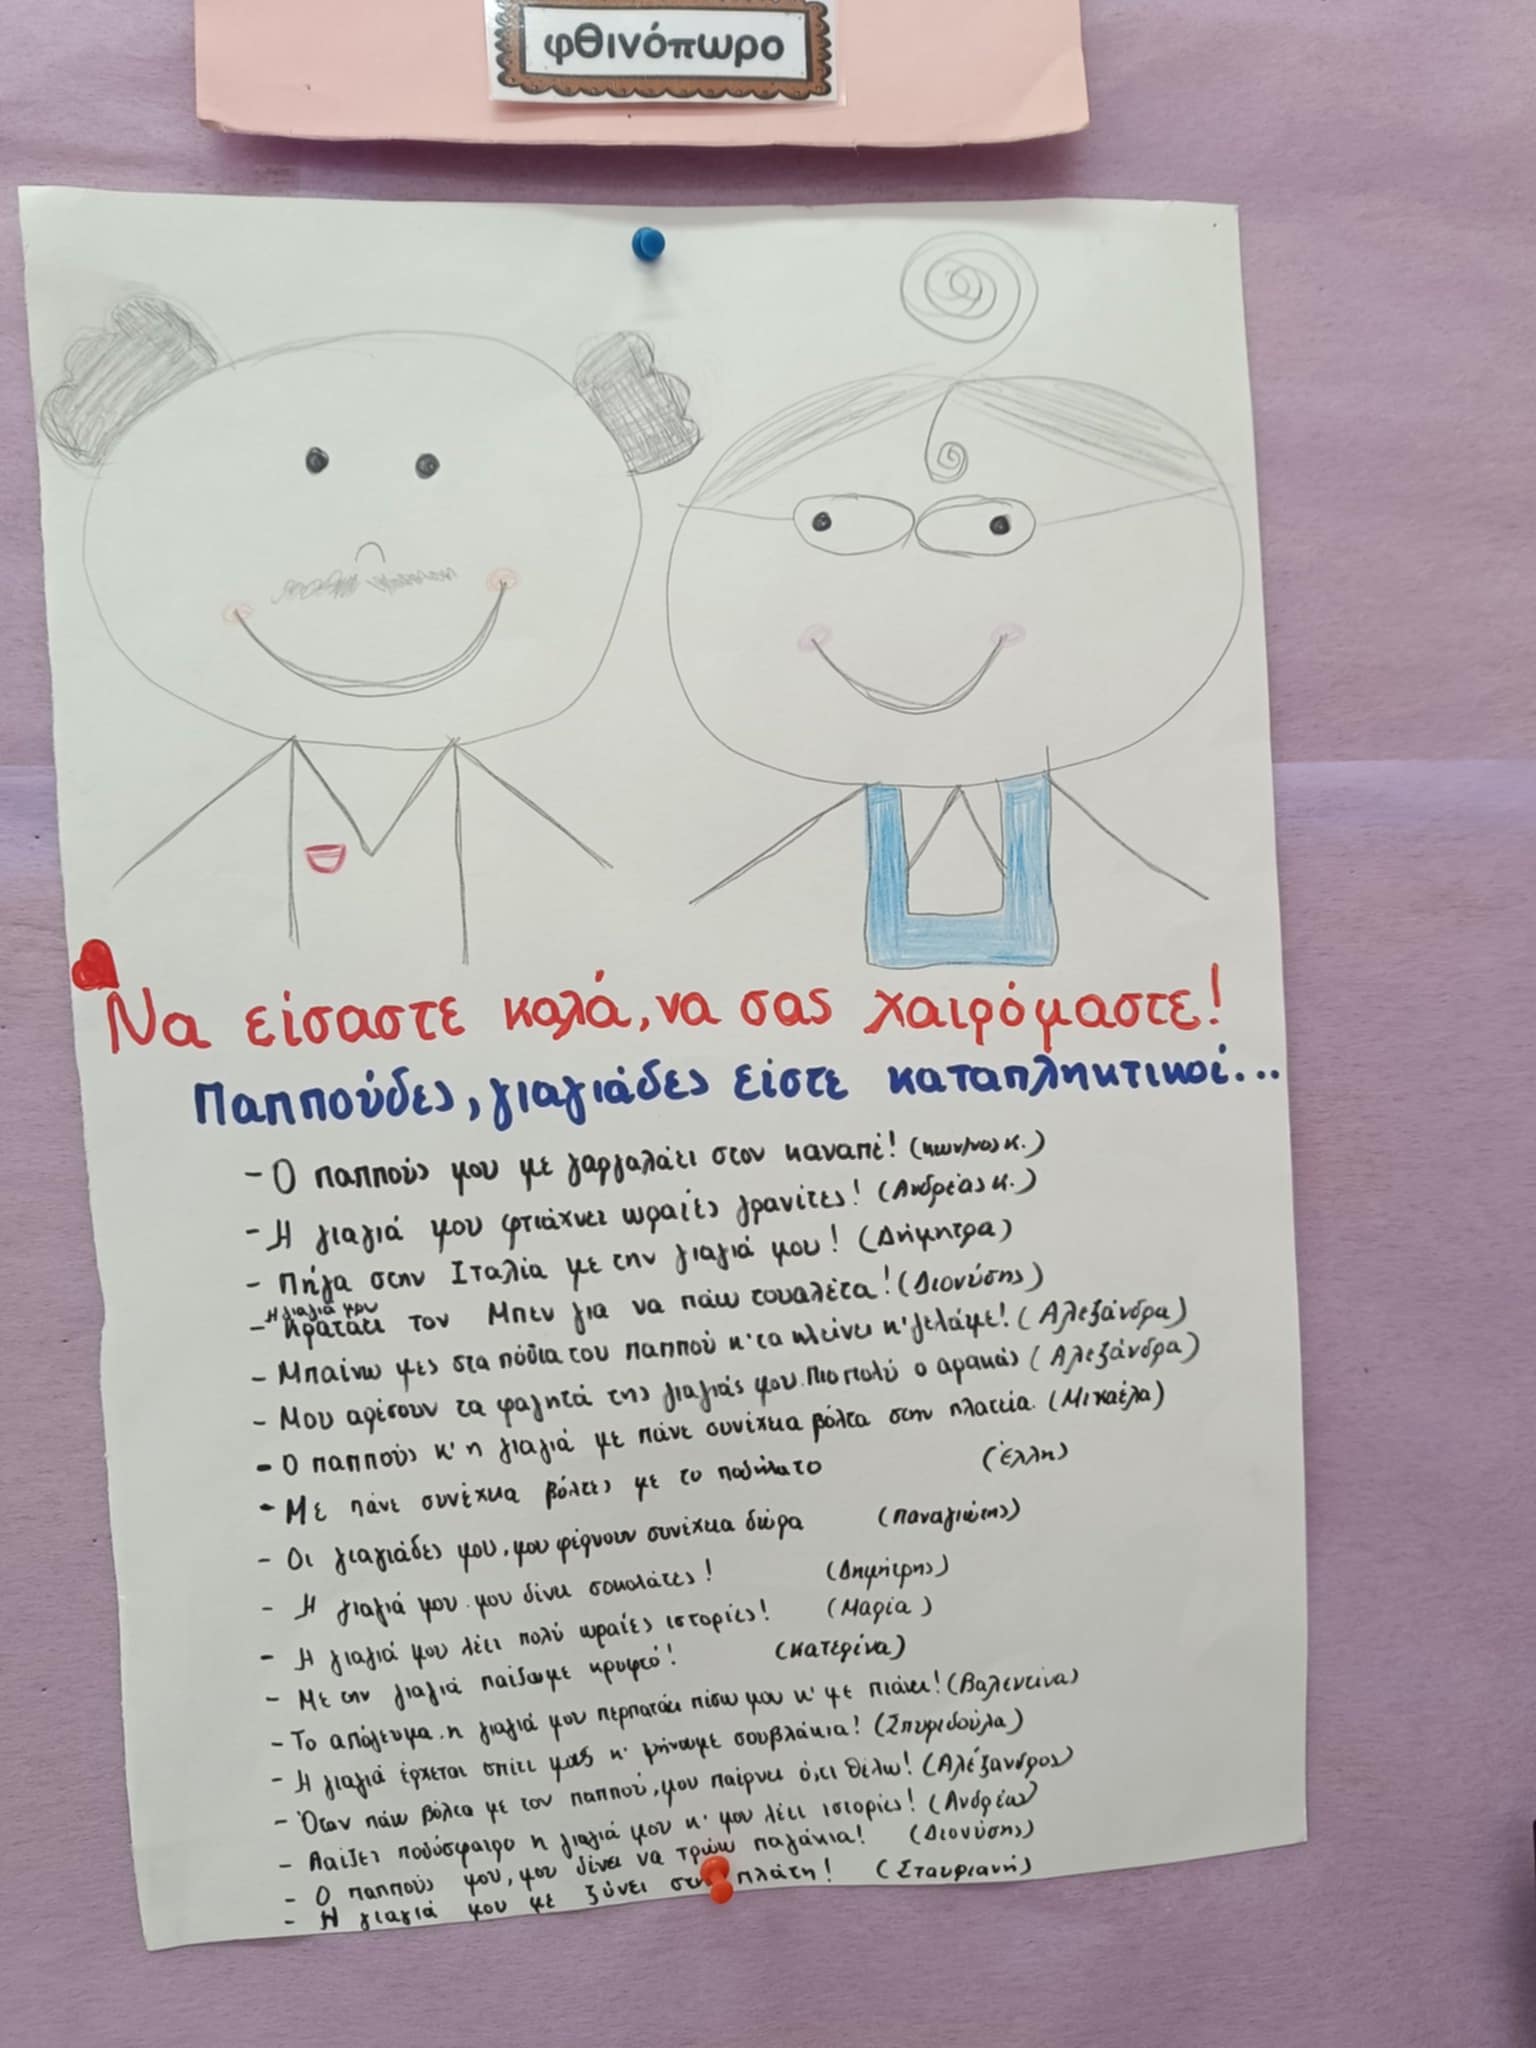 φθινόπωρο
Να είσαστε καλά, να σας χαιρόμαστε!
Παππούδες, γιαγιάδες είστε καταπληκτικοί...
- Ο παππούς μου με γαργαλάει στον καναπέ! (κων/νος κ.)
- Η γιαγιά μου φτιάχνει ωραίες γρανίτες! (Ανδρέας κ.)
- Πήγα στην Ιταλία με την γιαγιά μου! (Δήμητρα)
Η γιαγιά μου
- Κρατάει τον Μπεν για να πάω τουαλέτα! (Διονύσης)
- Μπαίνω μες στα πόδια του παππού κ' τα κλείνει κ' γελάμε! (Αλεξάνδρα)
- Μου αρέσουν τα φαγητά της γιαγιάς μου. Πιο πολύ ο αρακάς (Αλεξάνδρα)
- Ο παππούς κ' η γιαγιά με πάνε συνέχεια βόλτα στην πλατεία. (Μικαέλα)
- Με πάνε συνέχεια βόλτες με το ποδήλατο (Έλλη)
- Οι γιαγιάδες μου, μου φέρνουν συνέχεια δώρα (Παναγιώτης)
- Η γιαγιά μου μου δίνει σοκολάτες! (Δημήτρης)
- Η γιαγιά μου λέει πολύ ωραίες ιστορίες! (Μαρία)
- Με την γιαγιά παίζουμε κρυφτό! (Κατερίνα)
- Το απόγευμα η γιαγιά μου περπατάει πίσω μου κ' με πιάνει! (Βαλεντίνα)
- Η γιαγιά έρχεται σπίτι μας κ' ψήνουμε σουβλάκια! (Σπυριδούλα)
- Όταν πάω βόλτα με τον παππού, μου παίρνει ό,τι θέλω! (Αλέξανδρος)
- Παίζει ποδόσφαιρο η γιαγιά μου κ' μου λέει ιστορίες! (Ανδρέας)
- Ο παππούς μου, μου δίνει να τρώω παγάκια! (Διονύσης)
- Η γιαγιά μου με ξύνει στην πλάτη! (Σταυριανή)